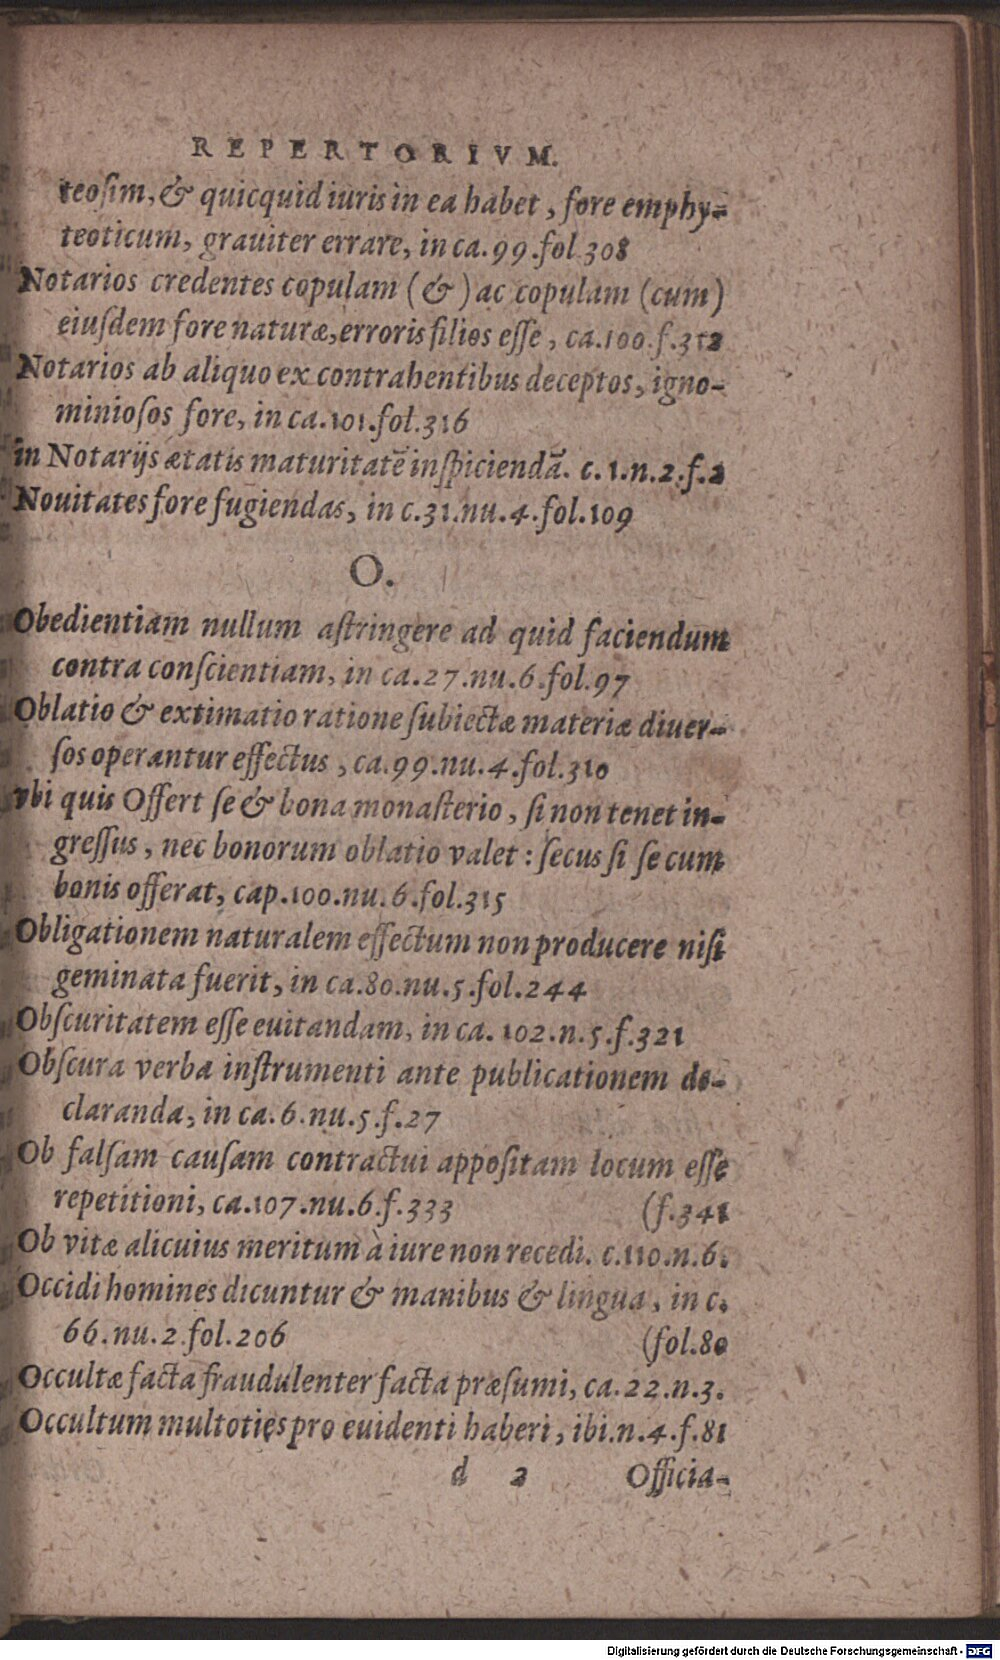 REPERTORIVM.
teoſim, & quicquid iuris in ea habet, fore emphy-
teoticum, grauiter errare, in ca. 99. fol 308
Notarios credentes copulam (&) ac copulam (cum)
eiuſdem fore naturæ, erroris filios eſſe, ca. 100. f. 312
Notarios ab aliquo ex contrahentibus deceptos, igno-
minioſos fore, in ca. 101. fol. 316
in Notarijs ætatis maturitatē inſpiciendā. c. 1. n. 2. f. 2
Nouitates fore fugiendas, in c. 31. nu. 4. fol. 109
O.
Obedientiam nullum aſtringere ad quid faciendum
contra conſcientiam, in ca. 27. nu. 6. fol. 97
Oblatio & extimatio ratione ſubiectæ materiæ diuer-
ſos operantur effectus, ca. 99. nu. 4. fol. 310
vbi quis Offert ſe & bona monaſterio, ſi non tenet in-
greſſus, nec bonorum oblatio valet: ſecus ſi ſe cum
bonis offerat, cap. 100. nu. 6. fol. 315
Obligationem naturalem effectum non producere niſi
geminata fuerit, in ca. 80. nu. 5. fol. 244
Obſcuritatem eſſe euitandam, in ca. 102. n. 5. f. 321
Obſcura verba inſtrumenti ante publicationem de-
claranda, in ca. 6. nu. 5. f. 27
Ob falſam cauſam contractui appoſitam locum eſſe
repetitioni, ca. 107. nu. 6. f. 333 (f. 341
Ob vitæ alicuius meritum à iure non recedi. c. 110. n. 6.
Occidi homines dicuntur & manibus & lingua, in c.
66. nu. 2 fol. 206 (fol. 80
Occultæ facta fraudulenter facta præſumi, ca. 22. n. 3.
Occultum multoties pro euidenti haberi, ibi. n. 4. f. 81
d 2 Officia-
Digitalisierung gefördert durch die Deutsche Forschungsgemeinschaft - DFG